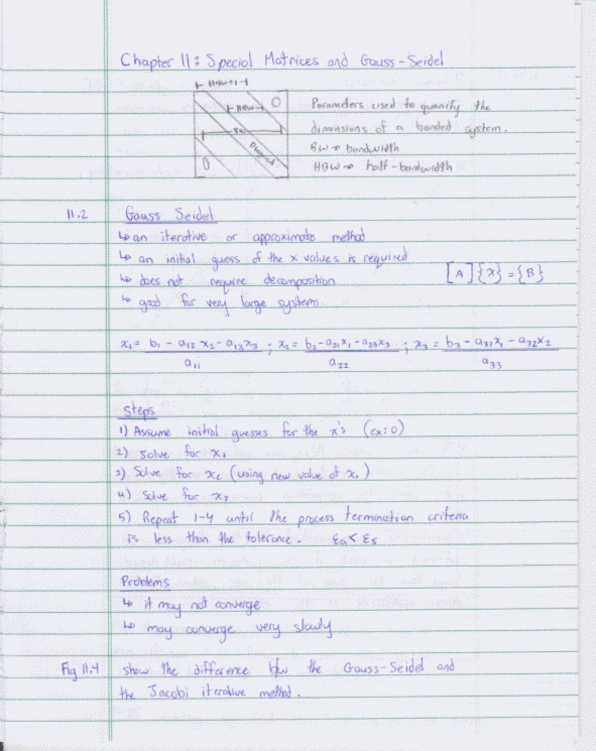 Chapter 11: Special Matrices and Gauss-Seidel
HBW+1
HBW
BW
Diagonal
0
0
Parameters used to quanify the
dimensions of a banded system.
BW → bandwidth
HBW → half-bandwidth
11.2 Gauss Seidel
↳ an iterative or approximate method
↳ an initial guess of the x values is required
↳ does not require decomposition
[A]{x}={B}
↳ good for very large systems.
x₁ = b₁ - a₁₂ x₂ - a₁₃x₃ ; x₂ = b₂ - a₂₁x₁ - a₂₃x₃ ; x₃ = b₃ - a₃₁x₁ - a₃₂x₂
a₁₁ a₂₂ a₃₃
Steps
1) Assume initial guesses for the x's (ex: 0)
2) Solve for x₁
3) Solve for x₂ (using new value of x₁)
4) Solve for x₃
5) Repeat 1-4 until the process termination criteria
is less than the tolerance. εa < εs
Problems
↳ it may not converge
↳ may converge very slowly
Fig 11.4 show the difference b/w the Gauss-Seidel and
the Jacobi iterative method.